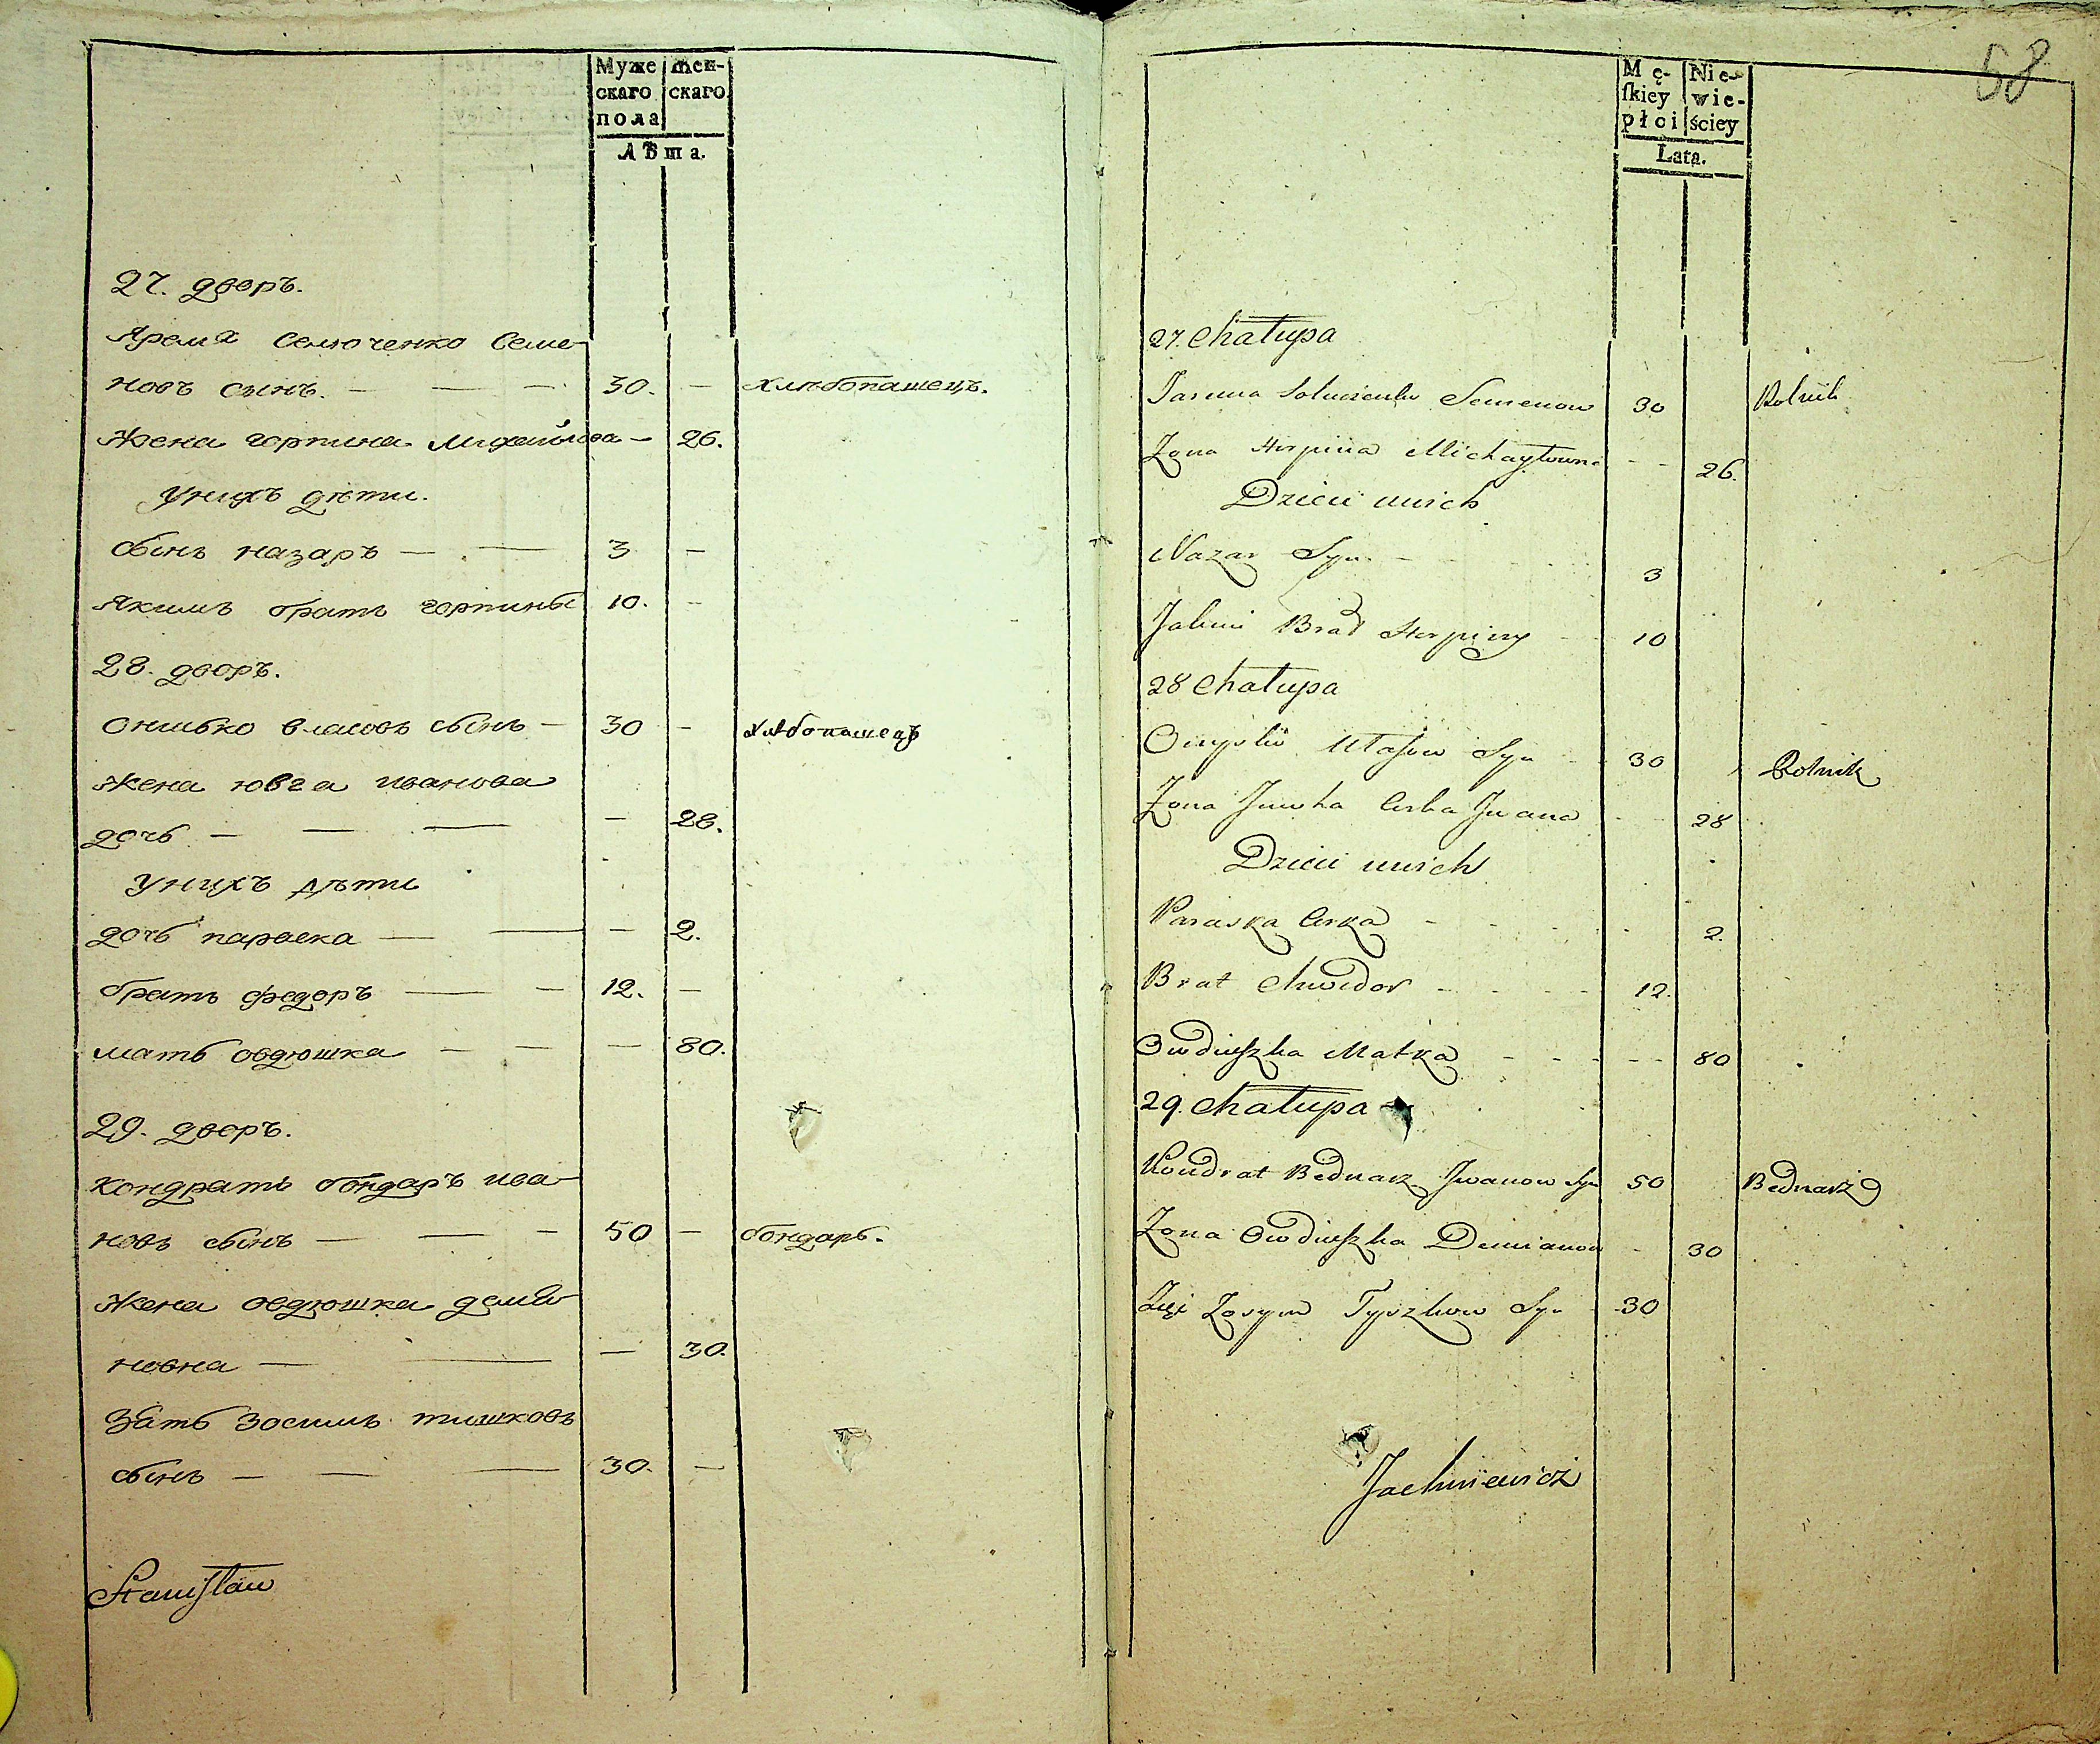 Муже
скаго
пола
жен-
скаго
лѣта.
27. дворъ.
Ярема Семюченко Семе-
новъ сынъ. — — — 30. — хлѣбопашецъ.
Жена горпина михайлова — 26.
унихъ дѣти.
сынъ назаръ — — 3 —
якимъ братъ горпины 10. —
28. дворъ.
онисько власовъ сынъ — 30 — хлѣбопашецъ
жена ювга иванова
дочь — — — — 28.
унихъ дѣти
дочь параска — — — 2.
братъ федоръ — — 12. —
мать овдюшка — — — 80.
29. дворъ.
кондратъ бондаръ ива-
новъ сынъ — — — 50 — бондарь.
жена овдюшка демя-
новна — — — 30.
зять зосимъ тишковъ
сынъ — — — 30. —
Stanisław
58
Mę-
skiey
płci
Nie-
wie-
ściey
Lata.
27. Chałupa
Jarema Semenow 30 Rolnik
Zona Horpina Michayłowna - - 26.
Dzieci unich
Nazar Syn - 3
Jakim Brat Horpiny - 10
28 Chałupa
Własow Syn 30 Rolnik
Zona Juwha Corka Jwana - - 28
Dzieci unich
Paraska Corka - - - - 2.
Brat Chwedor - - - - 12.
Owdiuszka Matka - - - - - 80
29. Chałupa
Kondrat Bednarz Jwanow Syn 50 Bednarz
Zona Owdiuszka Demianow - 30
Zięć Zosym Tyszkow Syn - 30
Jachniewicz